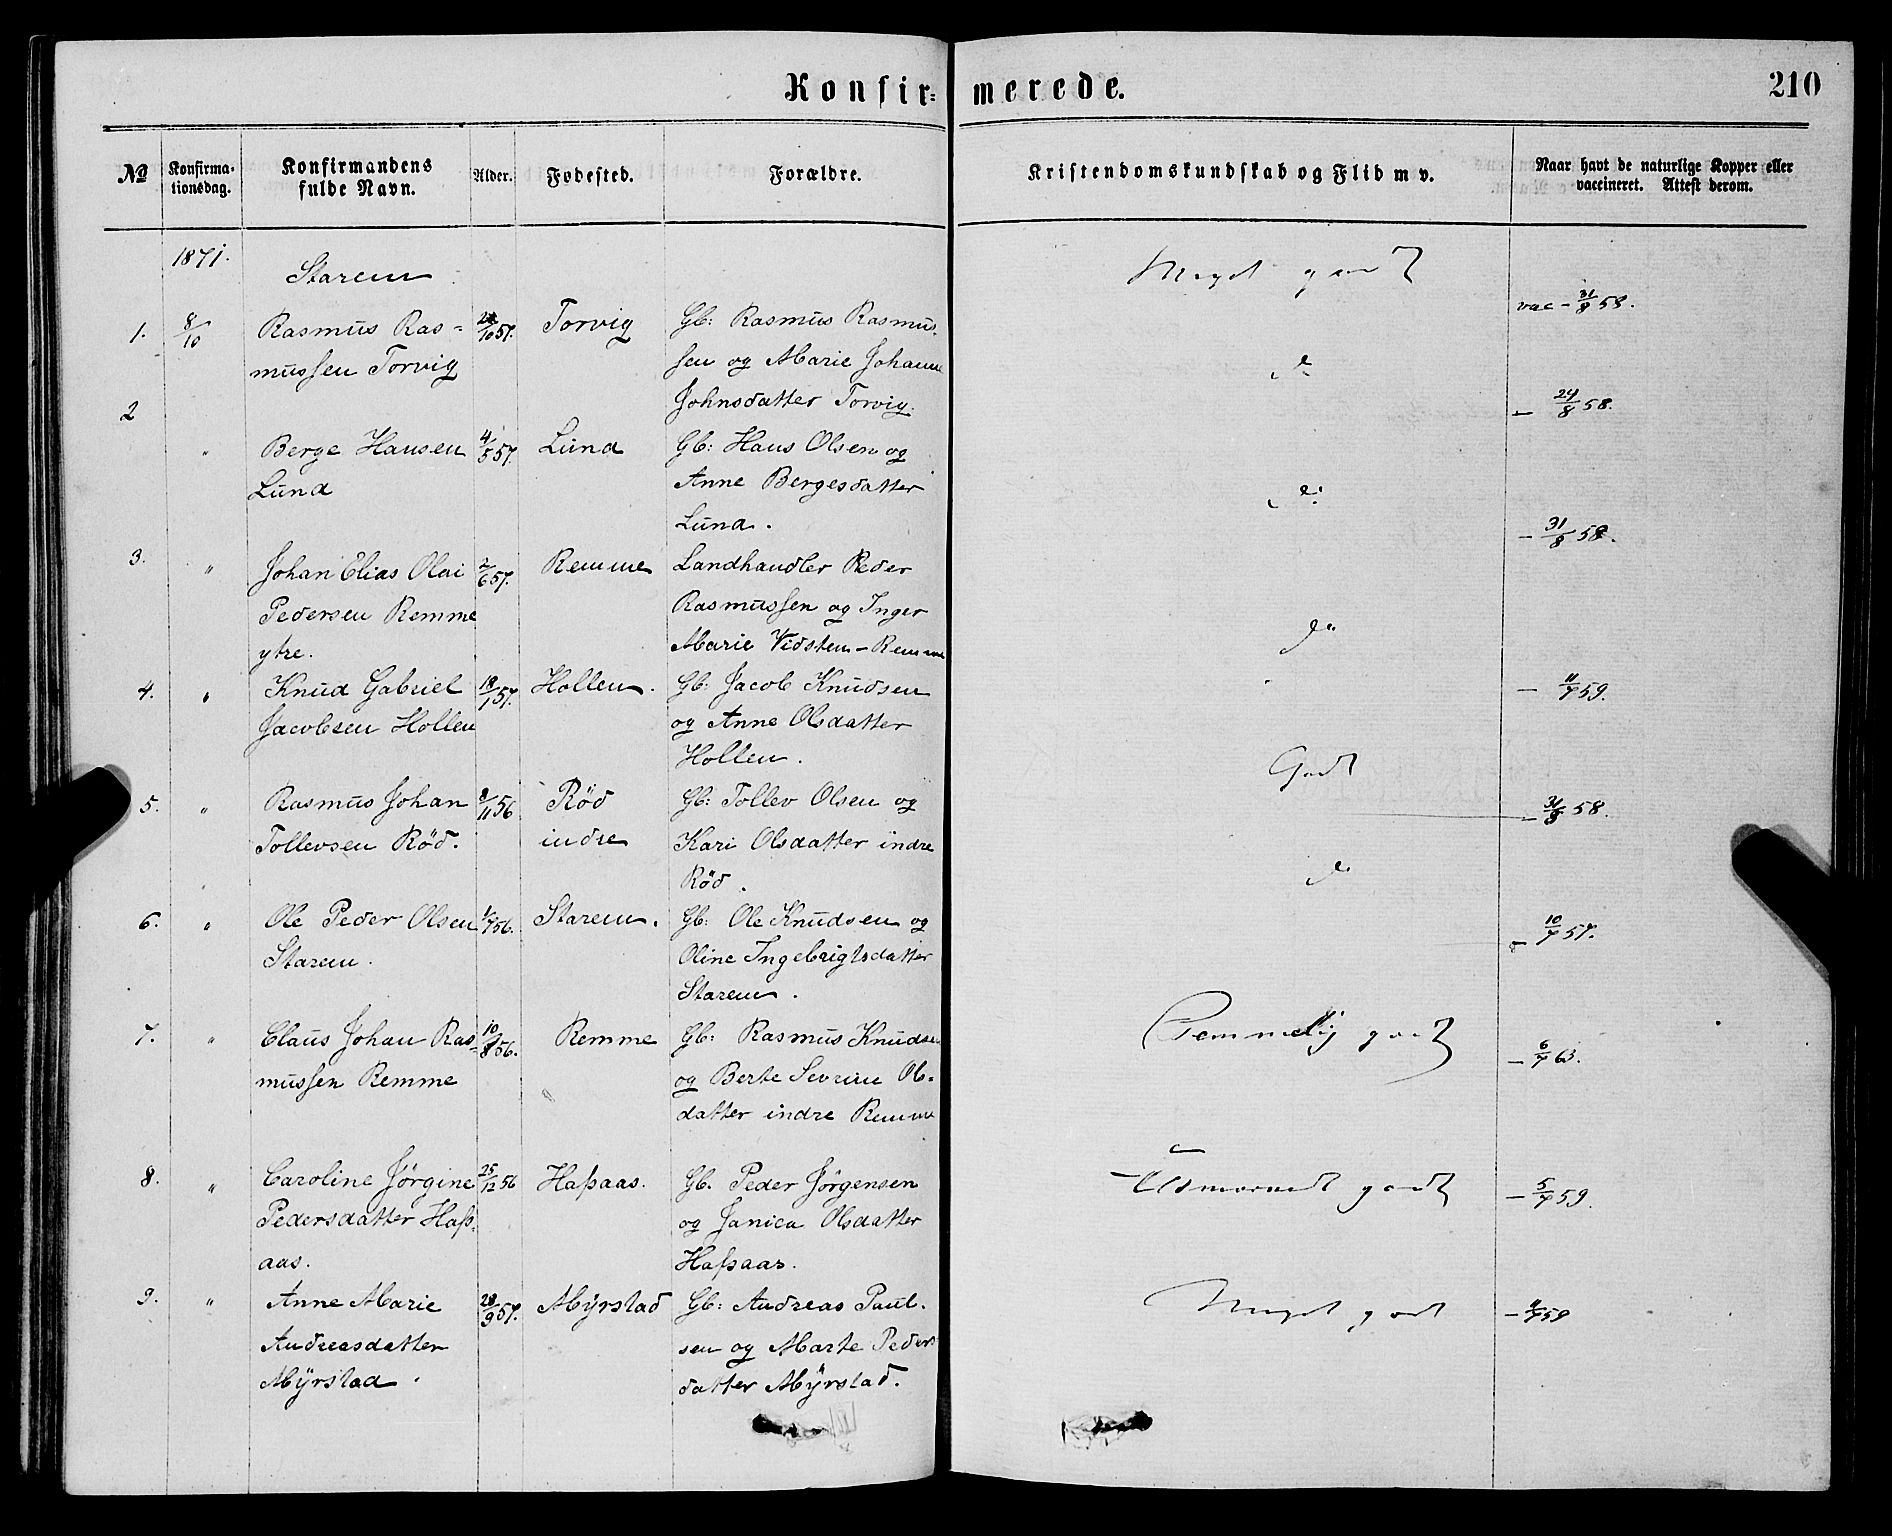 Konfir=merede.
210
No
Konfirma-
tionsdag.
Konfirmandens
fulde Navn.
Alder.
Fødested.
Forældre.
Kristendomskundskab og Flid m v.
Naar havt de naturlige Kopper eller
vaccineret. Attest derom.
1871.
Starem
Meget godt
vac – 31/8 58.
1. 8/10 Rasmus Ras= /10 57. Torvig Gb: Rasmus Rasmus-
mussen Torvig sen og Marie Johanne
Johnsdatter Torvig.
do
2 – 24/8 58.
" Berge Hansen 4/5 57. Lund Gb: Hans Olsen og
Lund Anne Bergesdatter
Lund.
do
– 31/8 58.
3. " Johan Elias Olai 2/6 57. Remme Landhandler Peder
Pedersen Remme Rasmussen og Inger
ytre. Marie Vidsten – Remme
do
4. " Knud Gabriel 18/7 57. Hollen. Gb: Jacob Knudsen – 11/7 59.
Jacobsen Hollen og Anne Olsdatter
Hollen.
Godt
5. " Rasmus Johan 8/11 56 Röd Gb: Tollev Olsen og – 31/8 58.
Tollevsen Röd. indre Kari Olsdatter indre
Röd.
do
6. " Ole Peder Olsen 1/7 56. Starem. Gb: Ole Knudsen og – 10/7 57.
Starem. Oline Ingebrigtsdatter
Starem.
7. " Claus Johan Ras- 10/8 56. Remme Gb: Rasmus Knudsen Temmelig godt – 6/7 63.
mussen Remme og Berte Sevrine Ols-
datter indre Remme
8. " Caroline Jörgine 25/12 56 Haſsaas. Gb. Peder Jörgensen Udmærket godt – 5/7 59.
Pedersdatter Haſs- og Janica Olsdatter
aas. Haſsaas.
9. " Anne Marie 28/9 57. Myrstad Gb: Andreas Paul- Meget godt – 11/7 59
Andreasdatter sen og Marte Peders
Myrstad. datter Myrstad.